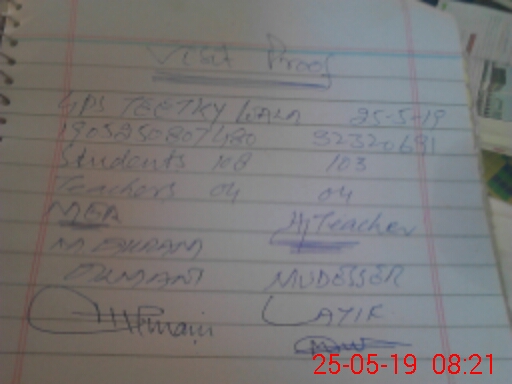 Visit Proof
GPS TEETKY WALA 25-5-19
190525080748 32320691
Students 108 103
Teachers 04 04
MEA H/Teacher
M. EKRAM
MUDESSER
LAYIK
25-05-19 08:21